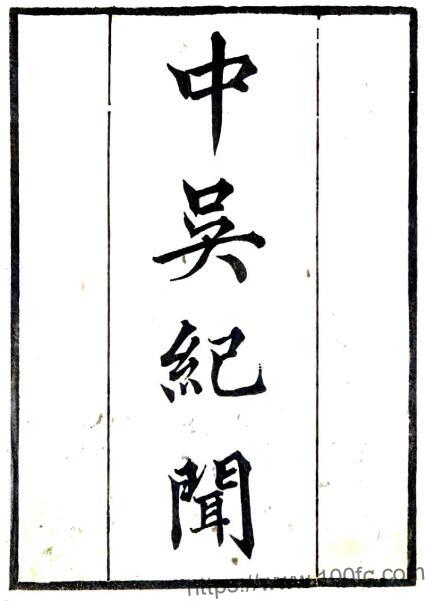 中吳紀聞
https://www.100fc.com